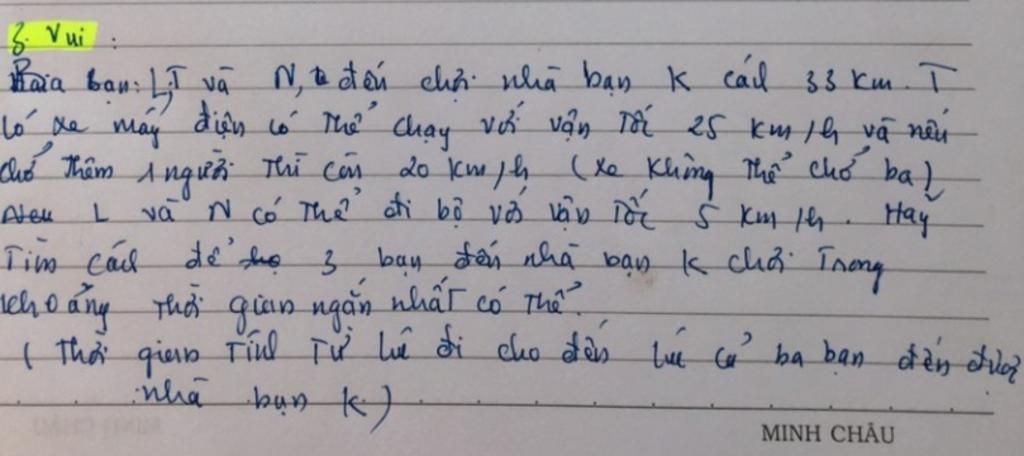 3. Vui :
Ba bạn: L, T và N, đến chơi nhà bạn K cách 33 Km. T
có xe máy điện có thể chạy với vận tốc 25 Km/h và nếu
chở thêm 1 người thì còn 20 Km/h (xe không thể chở ba)
L và N có thể đi bộ với vận tốc 5 Km/h. Hãy
Tìm cách để 3 bạn đến nhà bạn K chơi Trong
khoảng Thời gian ngắn nhất có Thể.
(Thời gian Tính Từ lúc đi cho đến lúc cả ba bạn đến được
nhà bạn K)
MINH CHÂU